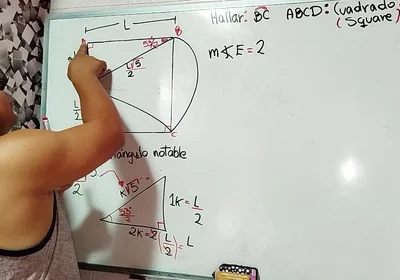 L
Hallar: BC ABCD: Cuadrado
(Square)
B
53°/2
L√5/2
m∡E = 2
L/2
C
iángulo notable
k√5
2
1k = L/2
53°/2
2k = 2(L/2) = L